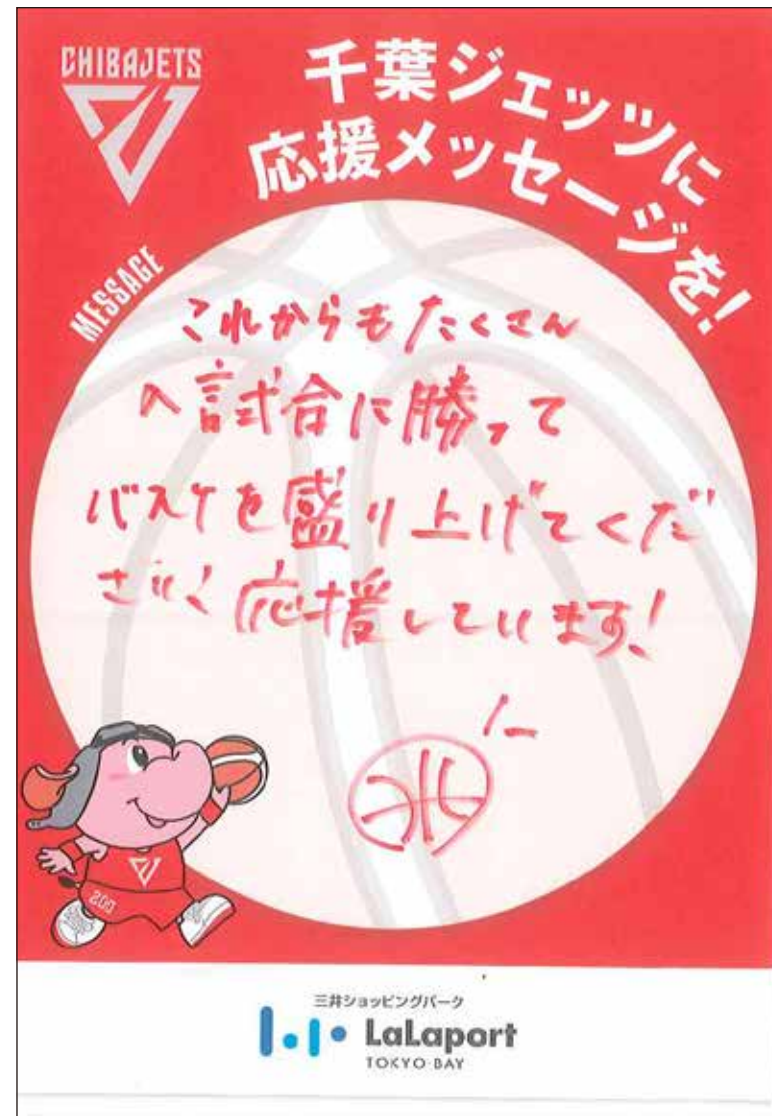 CHIBAJETS
千葉ジェッツに
応援メッセージを!
MESSAGE
これからもたくさん
の試合に勝って
バスケを盛り上げてくだ
さい!応援しています!
三井ショッピングパーク
LaLaport
TOKYO-BAY